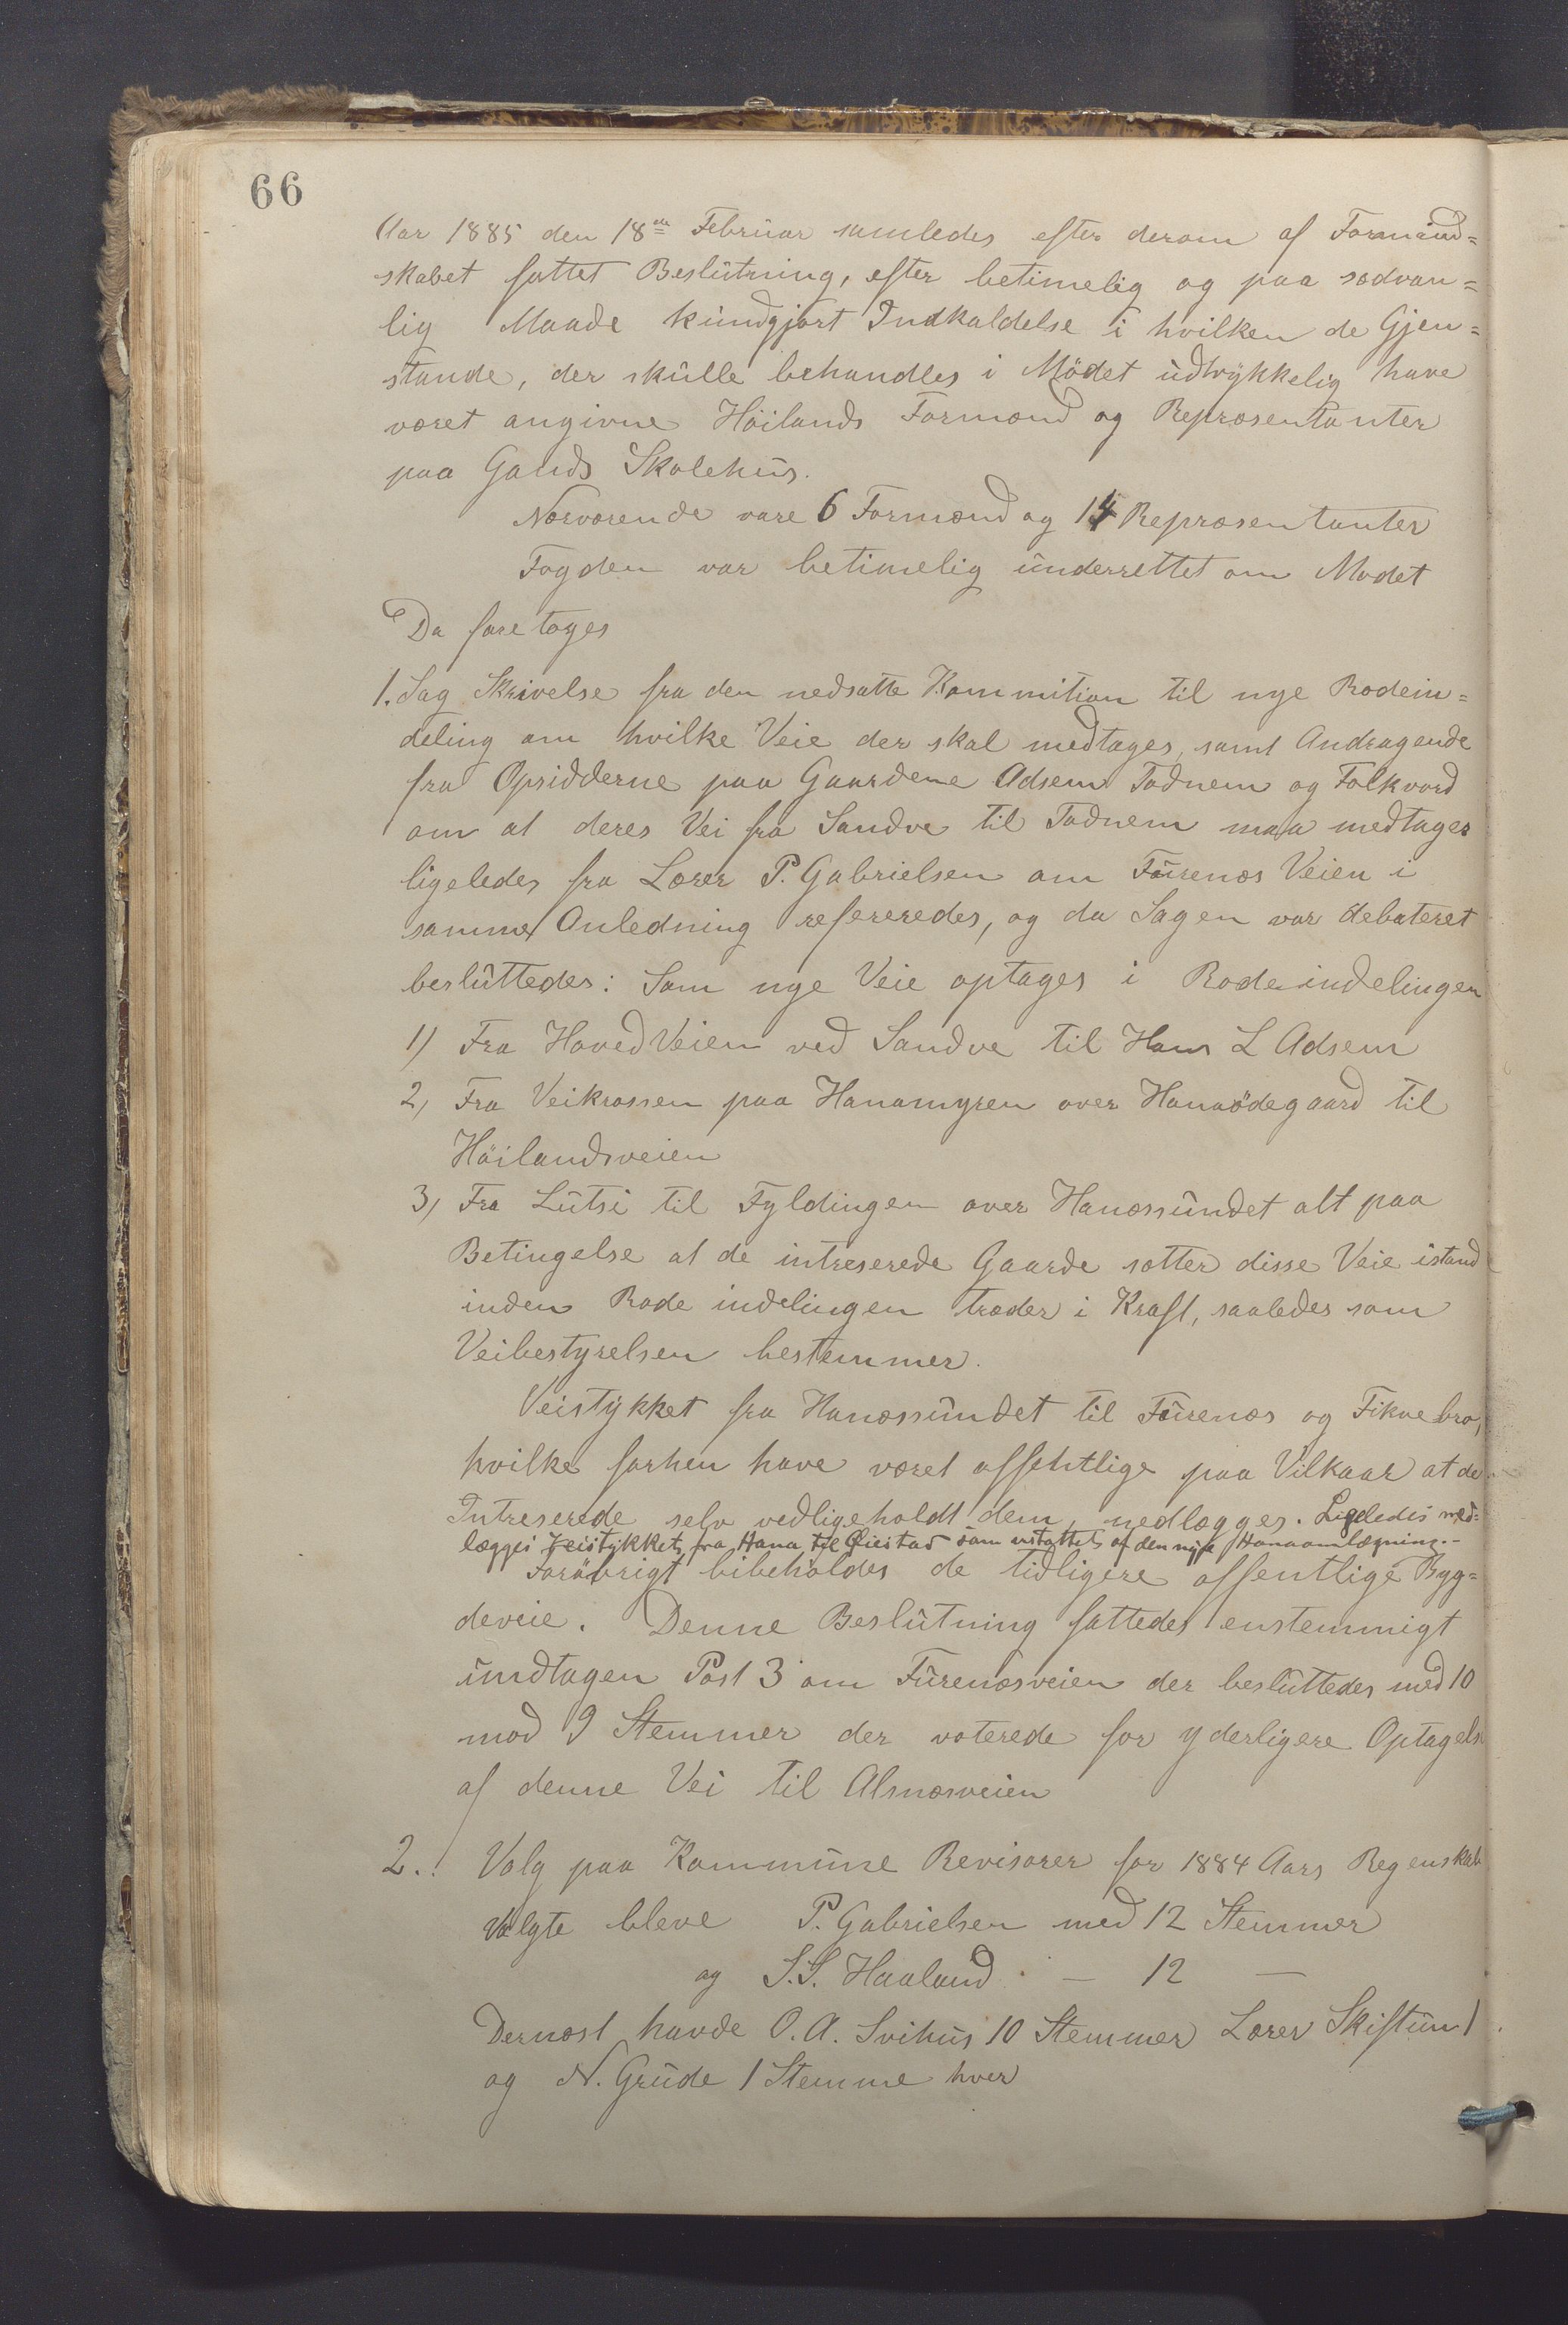 66
Aar 1885 den 18de Februar samledes efter derom af Formænd=
skabet fattet Beslutning, efter betimelig og paa sædvan=
lig Maade kundgjort Indkaldelse i hvilken de Gjen=
stande, der skulle behandles i Mödet udtrykkelig have
været angivne Höilands Formænd og Repræsentanter
paa Gands Skolehus.
Nærværende vare 6 Formænd og 14 Repræsentanter
Fogden var betimelig underrettet om Modet
Da foretoges
1. Sag Skrivelse fra den nedsatte Kommition til nye Rodein=
deling om hvilke Veie der skal medtages, samt Andragende
fra Opsidderne paa Gaardene Adsem Tadnem og Folkvord
om at deres Vei fra Sandve til Tadnem maa medtages
ligeledes fra Lærer P. Gabrielsen om Furenæs Veien i
samme Anledning refereredes, og da Sagen var debateret
besluttedes: Som nye Veie optages i Rodeindelingen
1) Fra HovedVeien ved Sandve til Hans L Adsem
2, Fra Veikrossen paa Hanamyren over Hanaödegaard til
Höilandsveien
3, Fra Lutsi til Fyldingen over Hanæssundet alt paa
Betingelse at de intreserede Gaarde sætter disse Veie istand
inden Rode indelingen træder i Kraft, saaledes som
Veibestyrelsen bestemmer.
Veistykket fra Hanæssundet til Furenæs og Fikvebro,
hvilke forhen have været offentlige paa Vilkaar at de
Intreserede selv vedligeholdt dem, nedlægges. Ligeledes ned=
lægges Veistykket fra Hana til Øiestad som erstattet af den nye Hanaomlægning.-
Foröbrigt bibeholdes de tidligere offentlige Byg=
deveie. Denne Beslutning fattedes enstemmigt
undtagen Post 3 om Furenæsveien der besluttedes med 10
mod 9 Stemmer der voterede for yderligere Optagelse
af denne Vei til Alsnæsveien
2. Valg paa Kommune Revisorer for 1884 Aars Regenskab
Valgte bleve P. Gabrielsen med 12 Stemmer
og S.S. Haaland - 12 —
Dernæst havde O. A. Svihus 10 Stemmer Lærer Skiftun 1
og N. Grude 1 Stemme hver